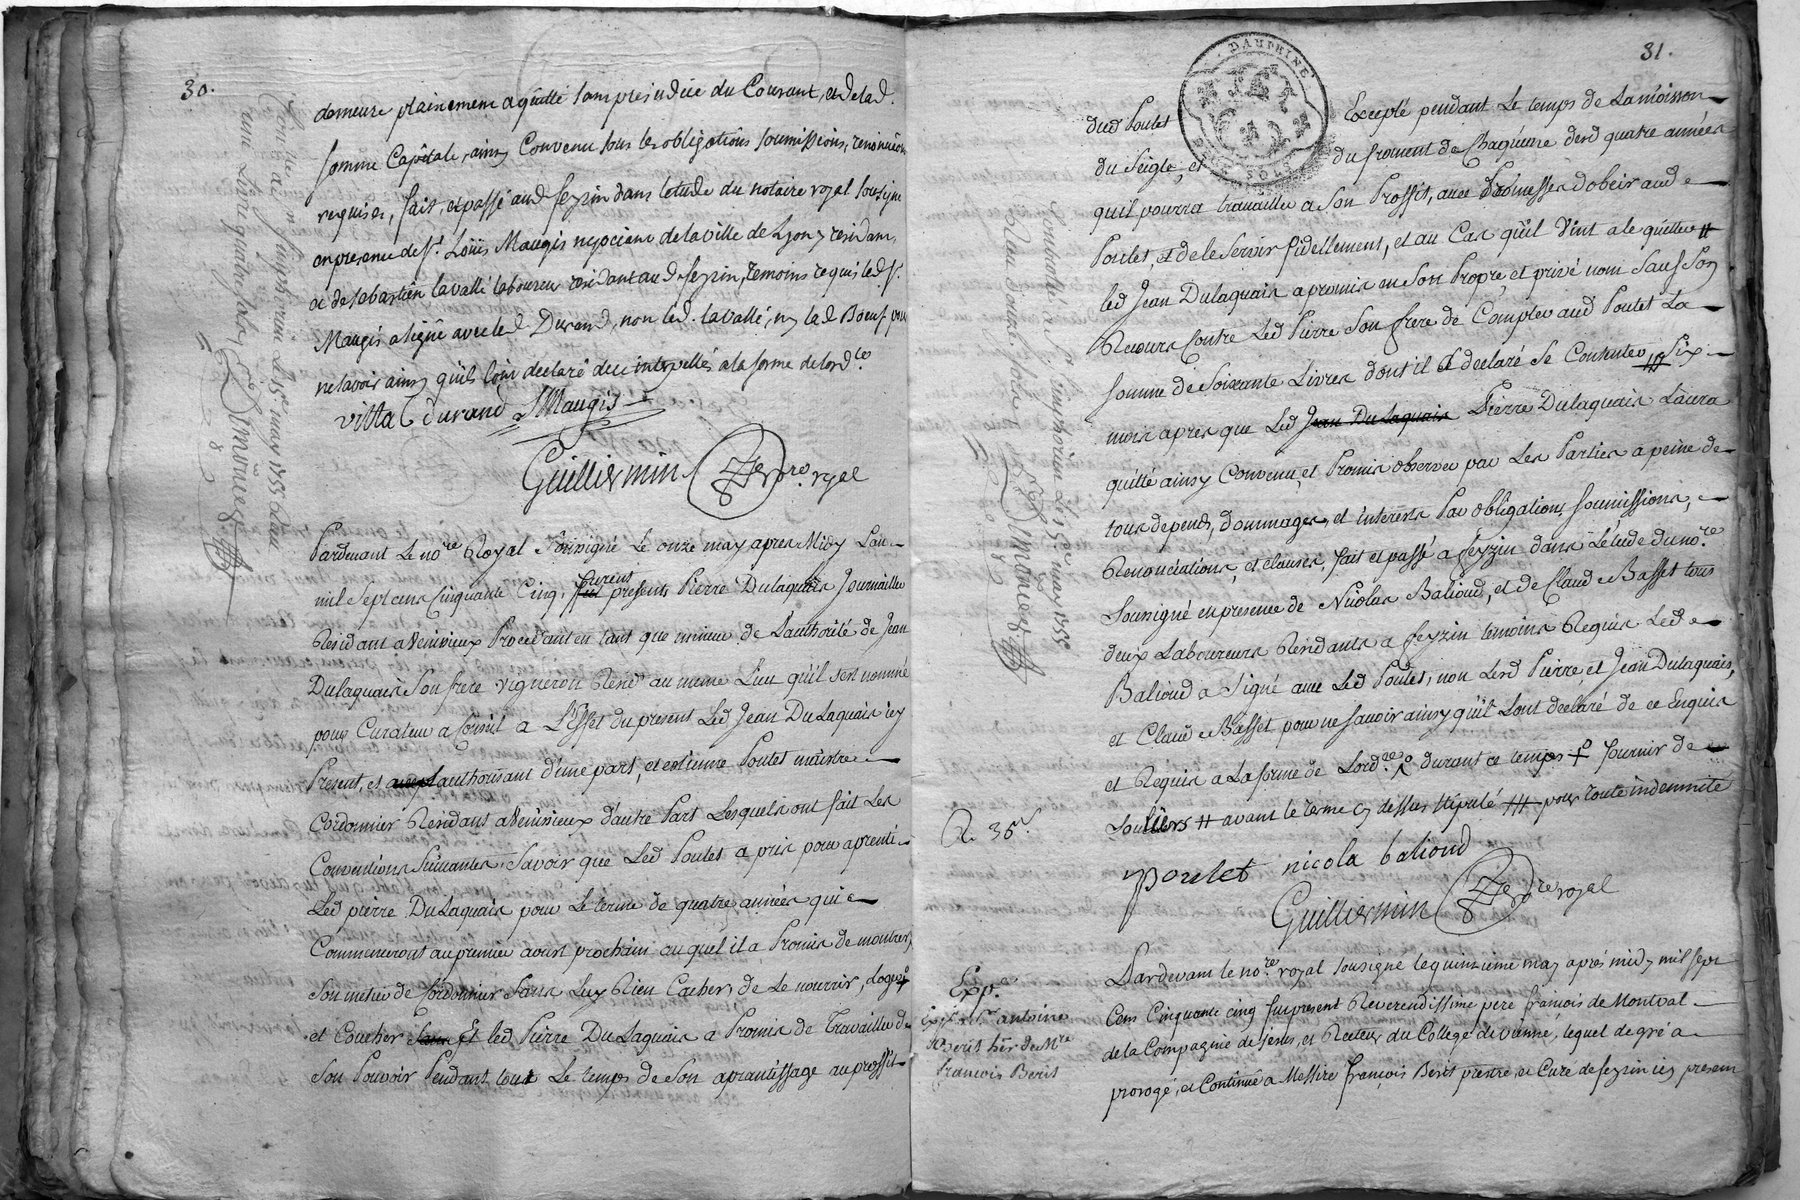 30.
demeure plainement aquitté sans prejudice du Courant, et de lad.
somme Capitale, ainsy Convenu sous les obligations soumissions, renonciaõns
requises, fait, et passé aud feyzin dans letude du notaire royal sousigné
en presence de Sr. Loüis Maugis negociant de la ville de Lyon y residant,
et de sebastien lavallé laboureur residant aud feyzin, temoins requis led. Sr.
Maugis a signé avec led Durand, non led. lavallé, ny lad Boeuf pour
ne savoir ainsy quils lont declaré de ce interpellés a la forme de lordce.
vitta C durand L Maugis
Guilliermin nore. royal
Pardevant Le nore Royal Sousigné Le onze may apres Midy Lan
mil Sept cens Cinquante Cinq, furent presents Pierre Dulaquais Journaillier
Residant a Venissieux Procedant en tant que mineur de L'authorité de Jean
Dulaquais Son frere vigneron Resid au meme Lieu qu'il s'est nommé
pour Curateur a Conseil a L'Effet du present Led Jean Du Laquais icy
Present, et authorisant d'une part, et estienne Poulet maistre
Cordonnier Residant a Venissieux d'autre Part Lesquels ont fait Les
Conventions Suivantes Savoir que Led Poulet a pris pour aprenti
Led pierre DuLaquais pour Le terme de quatre années qui
Commenceront au premier aoust prochain au quel il a Promis de montrer
Son metier de Cordonnier Sans Luy Rien Cacher, de Le nourrir, Loger
et Coucher Et led Pierre DuLaquais a Promis de Travailler de
Son Pouvoir Pendant tout Le temps de Son aprantissage au proffit
31.
DAUPHINE
dud Poulet Excepté pendant Le temps de La moisson
du Seigle, et du froment de Chaqune desd quatre années
quil pourra travailler a Son Proffit, avec Promesses d'obeir aud
Poulet, et de le Servir fidellement, et au Cas qu'il Vint a le quitter #
led Jean Dulaquais a promis en Son Propre, et privé nom Sauf Son
Recours Contre Led Pierre Son frere de Compter aud Poulet La
somme de Soixante Livres dont il a declaré Se Contenter Six
mois apres que Led Jean Du Laquais Pierre Dulaquais L'aura
quitté ainsy Convenu, et Promis observer par Les Parties a peine de
tous depens, dommages, et interests Par obligations, soumissions,
Renonciations, et clauses, fait et passé a feyzin dans L'etude du nore.
Sousigné en presence de Nicolas Balioud, et de Claude Basset tous
deux Laboureurs Residants a feyzin temoins Requis Led
Balioud a Signé avec Led Poulet, non Lesd Pierre et Jean Dulaquais,
et Claude Basset pour ne Savoir ainsy qu'ils L'ont declaré de ce Enquis
et Requis a La forme de Lordre. durant ce temps fournir de
Souliers # avant le terme cy dessus stipulé ### pour toute indemnité
poulet nicola balioud
Guilliermin nore royal
Pardevant le nore. royal sousigné le quinzieme may aprés midy mil sept
Cens Cinquante cinq fut present Reverendissime pere françois de Montval
de la Compagnie de Jesus, et Recteur du College de vienne, lequel de gré a
prorogé, et Continué a Messire françois Berit prestre et Curé de feyzin icy present
Exp.
antoine
Berit her. de Mre
françois Berit